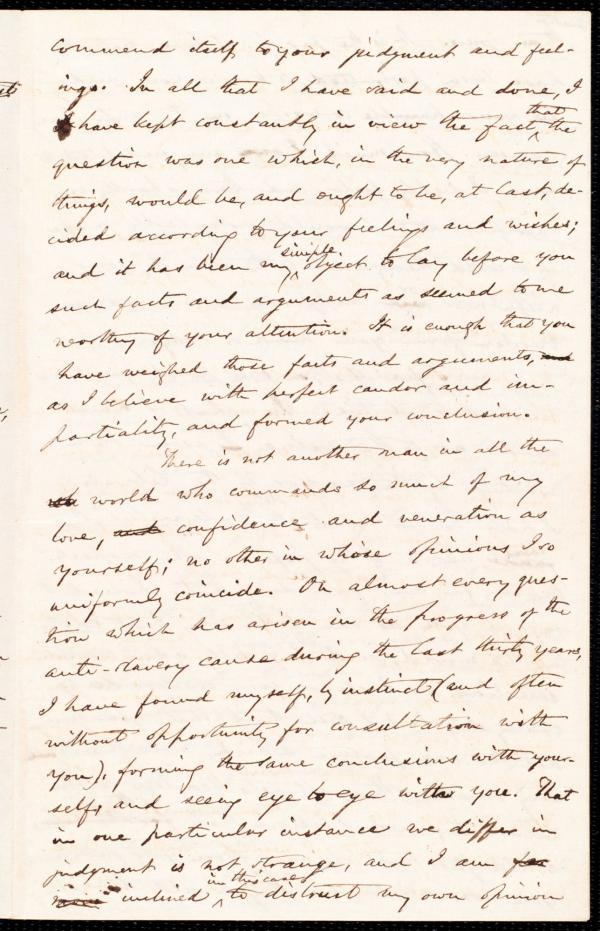 commend itself to your judgment and feel-
ings. In all that I have said and done, I
have kept constantly in view the fact that the
question was one which, in the very nature of
things, would be, and ought to be, at last, de-
cided according to your feelings and wishes;
and it has been my simple object to lay before you
such facts and arguments as seemed to me
worthy of your attention. It is enough that you
have weighed those facts and arguments, and
as I believe with perfect candor and im-
partiality, and formed your conclusion.
There is not another man in all the
world who commands so much of my
love, and confidence and veneration as
yourself; no other in whose opinions I so
uniformly coincide. On almost every ques-
tion which has arisen in the progress of the
anti-slavery cause during the last thirty years,
I have found myself, by instinct (and often
without opportunity for consultation with
you), forming the same conclusions with your-
self, and seeing eye to eye with you. That
in one particular instance we differ in
judgment is not strange, and I am
inclined in this case to distrust my own opinion